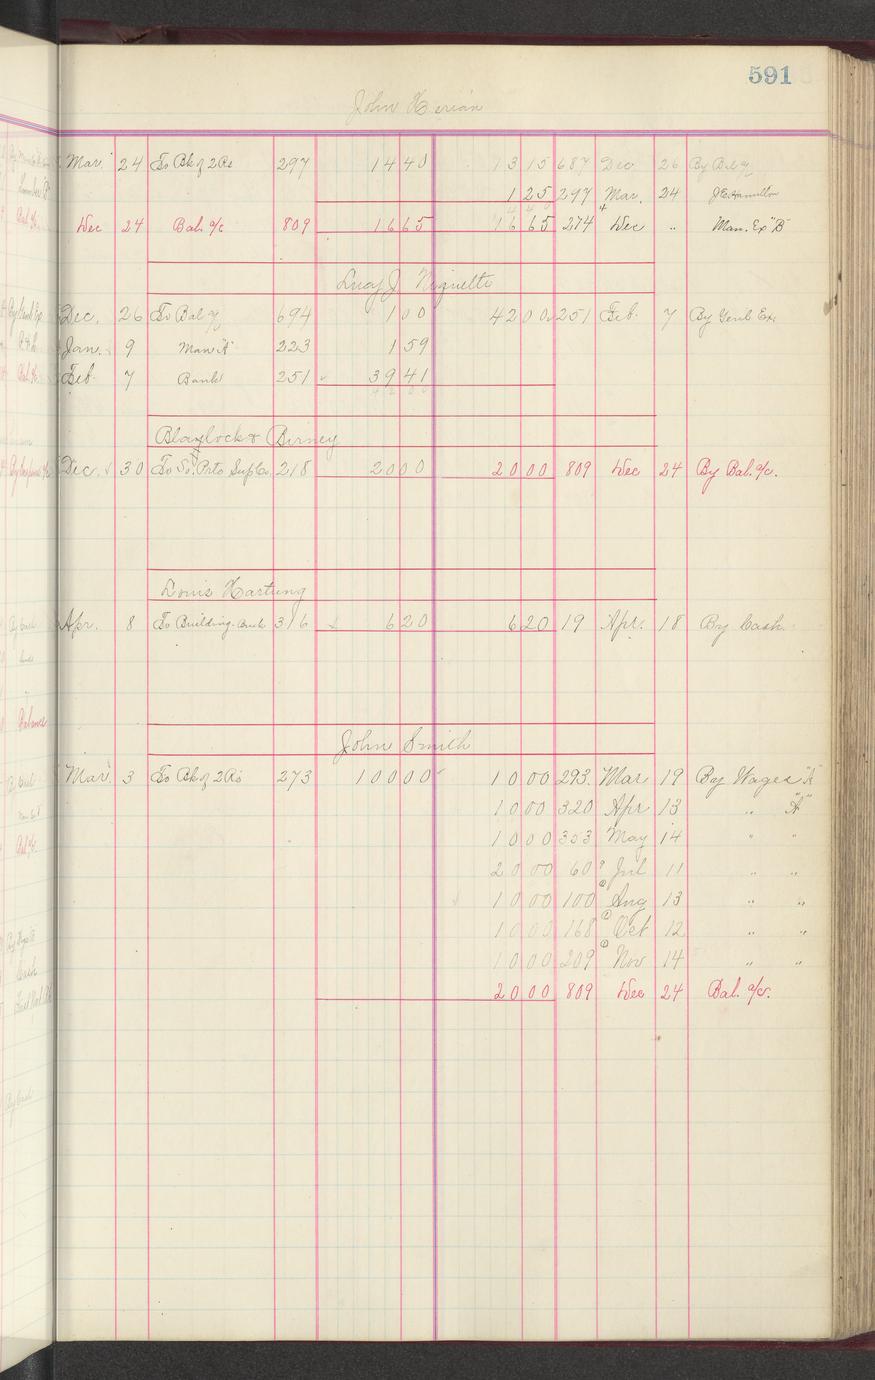 591
John Herian
Mar. 24 To Bk of 2Rs 297 14 40 13 15 687 Dec 26 By Bal %
1 25 297 Mar. 24 J E Hamilton
Dec 24 Bal. a/c 809 16 65 16 65 274 Dec " Man. Ex "B"
Lucy J Niquette
Dec. 26 To Bal % 694 1 00 42 00 251 Feb. 7 By Genl Ex
Jan. 9 Man "A" 223 1 59
Feb. 7 Bank 251 39 41
Blaylock & Birney
Dec. 30 To So. Prto Sup Co. 218 20 00 20 00 809 Dec 24 By Bal. a/c.
Louis Hartung
Apr. 8 To Building 316 6 20 6 20 19 Apr. 18 By Cash
John Smith
Mar. 3 To Bk of 2Rs 273 100 00 10 00 293 Mar 19 By Wages "A"
10 00 320 Apr 13 " "A"
10 00 353 May 14 " "
20 00 60 Jul 11 " "
10 00 100 Aug 13 " "
10 00 168 Oct 12 " "
10 00 209 Nov 14 " "
20 00 809 Dec 24 Bal. a/c.